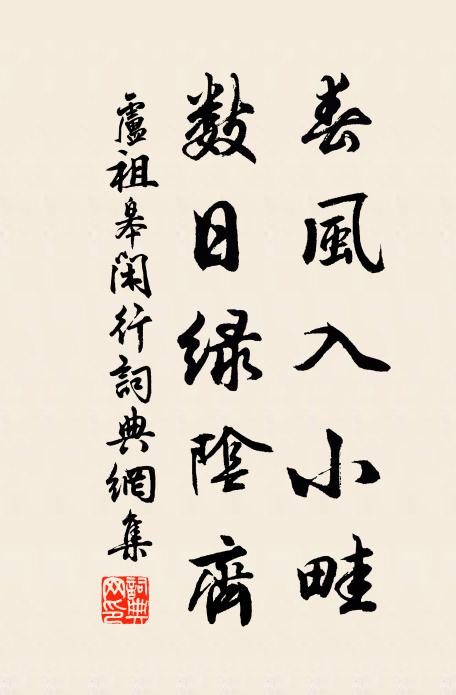 春風入小畦
數日綠陰齊
盧祖皋閑行詞典網集
詞典網印